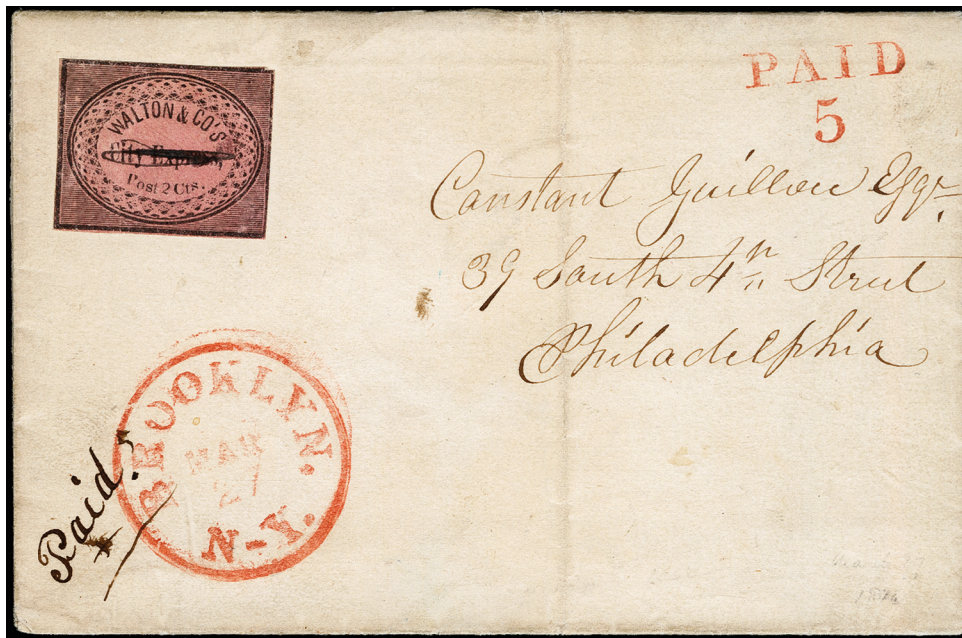 WALTON & CO'S
City Express,
Post 2 Cts.
PAID
5
Constant Guillou Esqr.
39 South 4th Street
Philadelphia
BROOKLYN.
MAR
27
N-Y.
Paid 5